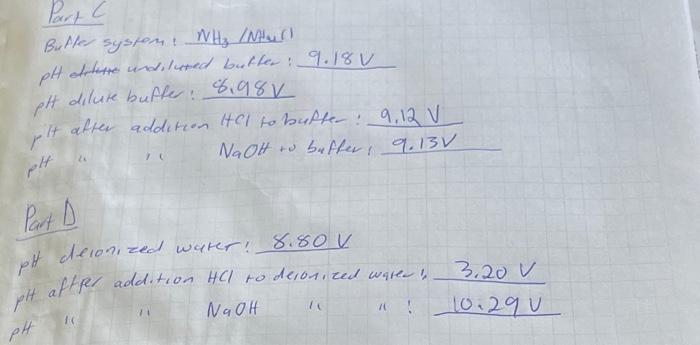 Part C
Buffer system: NH3/NH4Cl
pH undiluted buffer: 9.18 V
pH dilute buffer: 8.98 V
pH after addition HCl to buffer: 9.12 V
pH " " NaOH to buffer: 9.13 V
Part D
pH deionized water: 8.80 V
pH after addition HCl to deionized water: 3.20 V
pH " " NaOH " " : 10.29 V